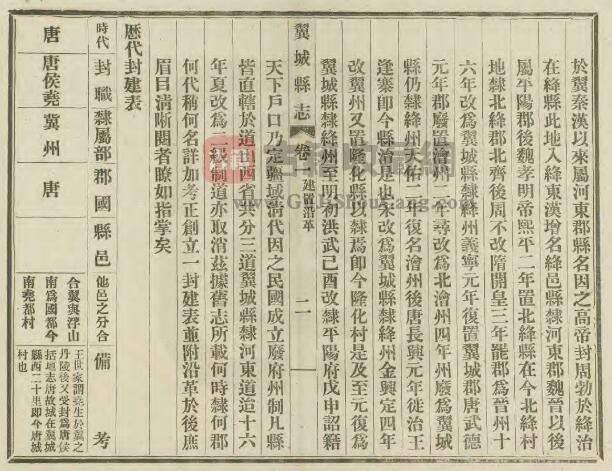 於翼秦漢以來屬河東郡縣名因之高帝封周勃於絳治
在絳縣此地入絳東漢增名絳邑縣隸河東郡魏晉以後
屬平陽郡後魏孝明帝熙平二年置北絳縣在今北絳村
地隸北絳郡北齊後周不改隋開皇三年罷郡爲晉州十
六年改爲翼城縣隸絳州義寧元年復置翼城郡唐武德
元年郡廢置澮州二年尋改爲北澮州四年州廢爲翼城
縣仍隸絳州天佑二年復名澮州後唐長興元年徙治王
逢寨即今縣治是也宋改爲翼城縣隸絳州金興定四年
改翼州又置隆化縣以隸焉即今隆化村是及至元復爲
翼城縣隸絳州至明初洪武己酉改隸平陽府戊申詔籍
翼城縣志 卷一 建置沿革 二
天下戶口乃定疆域清代因之民國成立廢府州制凡縣
皆直轄於道山西省共分三道翼城縣隸河東道迨十六
年夏改爲二級制道亦取消茲據舊志所載何時隸何郡
何代稱何名詳加考正創立一封建表並附沿革於後庶
眉目清晰閱者瞭如指掌矣
歷代封建表
時代 封職 隸屬部 郡國縣邑 他邑之分合 備考
唐 唐侯堯 冀州 唐
合翼與浮山
南爲國都今
南堯都村
王世家謂堯生於翼之
丹陵後又受封爲唐侯
括地志唐故城在翼城
縣西二十里即今唐城
村也